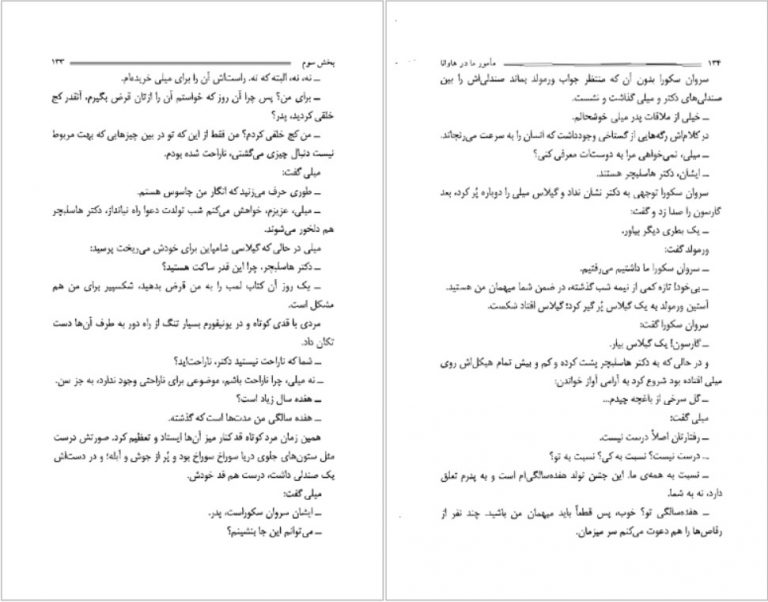 بخش سوم ۱۳۳
ــ نه، نه، البته که نه. راست‌اش آن را برای میلی خریده‌ام.
ــ برای من؟ پس چرا آن روز که خواستم آن را ازتان قرض بگیرم، آنقدر کج
خلقی کردید، پدر؟
ــ من کج خلقی کردم؟ من فقط از این که تو در بین چیزهایی که بهت مربوط
نیست دنبال چیزی می‌گشتی، ناراحت شده بودم.
میلی گفت:
ــ طوری حرف می‌زنید که انگار من جاسوس هستم.
ــ میلی، عزیزم، خواهش می‌کنم شب تولدت دعوا راه نیانداز، دکتر هاسلبچر
هم دلخور می‌شوند.
میلی در حالی که گیلاسی شامپاین برای خودش می‌ریخت پرسید:
ــ دکتر هاسلبچر، چرا این قدر ساکت هستید؟
ــ یک روز آن کتاب لمب را به من قرض بدهید، شکسپیر برای من هم
مشکل است.
مردی با قدی کوتاه و در یونیفورم بسیار تنگ از راه دور به طرف آن‌ها دست
تکان داد.
ــ شما که ناراحت نیستید دکتر، ناراحت‌اید؟
ــ نه میلی، چرا ناراحت باشم، موضوعی برای ناراحتی وجود ندارد، به جز سن.
ــ هفده سال زیاد است؟
ــ هفده سالگی من مدت‌ها است که گذشته.
همین زمان مرد کوتاه قد کنار میز آن‌ها ایستاد و تعظیم کرد. صورتش درست
مثل ستون‌های جلوی دریا سوراخ سوراخ بود و پُر از جوش و آبله؛ و در دست‌اش
یک صندلی داشت، درست هم قد خودش.
میلی گفت:
ــ ایشان سروان سکوراست، پدر.
ــ می‌توانم این جا بنشینم؟
۱۳۴ مأمور ما در هاوانا
سروان سکورا بدون آن که منتظر جواب ورمولد بماند صندلی‌اش را بین
صندلی‌های دکتر و میلی گذاشت و نشست.
ــ خیلی از ملاقات پدر میلی خوشحالم.
در کلام‌اش رگه‌هایی از گستاخی وجودداشت که انسان را به سرعت می‌رنجاند.
ــ میلی، نمی‌خواهی مرا به دوست‌ات معرفی کنی؟
ــ ایشان، دکتر هاسلبچر هستند.
سروان سکورا توجهی به دکتر نشان نداد و گیلاس میلی را دوباره پُر کرد، بعد
گارسون را صدا زد و گفت:
ــ یک بطری دیگر بیاور.
ورمولد گفت:
ــ سروان سکورا ما داشتیم می‌رفتیم.
ــ بی‌خود! تازه کمی از نیمه شب گذشته، در ضمن شما میهمان من هستید.
آستین ورمولد به یک گیلاس پُر گیر کرد؛ گیلاس افتاد شکست.
سروان سکورا گفت:
ــ گارسون! یک گیلاس بیار.
و در حالی که به دکتر هاسلبچر پشت کرده و کم و بیش تمام هیکل‌اش روی
میلی افتاده بود شروع کرد به آرامی آواز خواندن:
ــ گل سرخی از باغچه چیدم...
میلی گفت:
ــ رفتارتان اصلاً درست نیست.
ــ درست نیست؟ نسبت به کی؟ نسبت به تو؟
ــ نسبت به همه‌ی ما. این جشن تولد هفده‌سالگی‌ام است و به پدرم تعلق
دارد، نه به شما.
ــ هفده‌سالگی تو؟ خوب، پس قطعاً باید میهمان من باشید. چند نفر از
رقاص‌ها را هم دعوت می‌کنم سر میزمان.